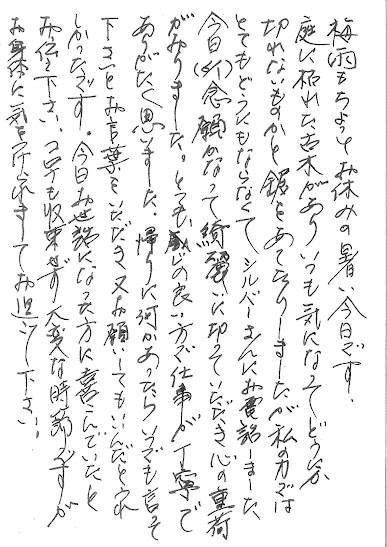 梅雨もちょっとお休みの暑い今日です。
庭に枯れた古木があり いつも気になってどうにか
切れないものかと鋸をあてたりしましたが私の力では
とてもどうにもならなくて シルバーさんにお電話しました、
今日(9/1)念願かなって綺麗に切っていただき心の重荷
がおりました。とても感じの良い方で仕事が丁寧で
ありがたく思いました。帰りに何かあったらいつでも言って
下さいとお言葉をいただき又お願いしてもいいんだとうれ
しかったです。今日お世話になった方に喜んでいたと
お伝え下さい。コロナも収束せず大変な時節ですが
お身体に気をつけられましてお過ごし下さい。